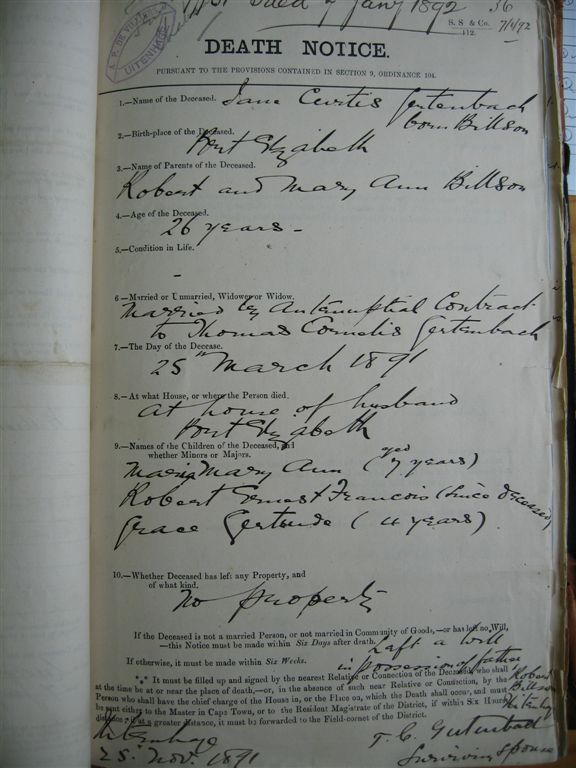 Filed 7 Jany 1892 36
S. S & Co. 7/1/92
112.
A. F. DE
UITENHAGE
DEATH NOTICE.
PURSUANT TO THE PROVISIONS CONTAINED IN SECTION 9, ORDINANCE 104.
1.—Name of the Deceased. Jane Curtis Gertenbach
born Billson
2.—Birth-place of the Deceased.
Port Elizabeth
3.—Name of Parents of the Deceased.
Robert and Mary Ann Billson
4.—Age of the Deceased.
26 years -
5.—Condition in Life.
-
6—Married or Unmarried, Widower or Widow.
Married by Antenuptial Contract
to Thomas Cornelis Gertenbach
7.—The Day of the Decease.
25th March 1891
8.—At what House, or where the Person died.
at house of husband
Port Elizabeth
9.—Names of the Children of the Deceased, and
whether Minors or Majors.
Maria Mary Ann (aged 7 years)
Robert Ernest Francois (since deceased)
Grace Gertrude (4 years)
10.—Whether Deceased has left any Property, and
of what kind.
No property
If the Deceased is not a married Person, or not married in Community of Goods,—or has left no Will,
—this Notice must be made within Six Days after death. Left a Will
If otherwise, it must be made within Six Weeks. in possession of father
Robert
Billson
Uitenhage
*** It must be filled up and signed by the nearest Relative or Connection of the Deceased, who shall
at the time be at or near the place of death,—or, in the absence of such near Relative or Connection, by the
Person who shall have the chief charge of the House in, or the Place on, which the Death shall occur, and must
be sent either to the Master in Cape Town, or to the Resident Magistrate of the District, if within Six Hours'
distance; if at a greater distance, it must be forwarded to the Field-cornet of the District.
Uitenhage T. C. Gertenbach
25. Nov. 1891 Surviving spouse